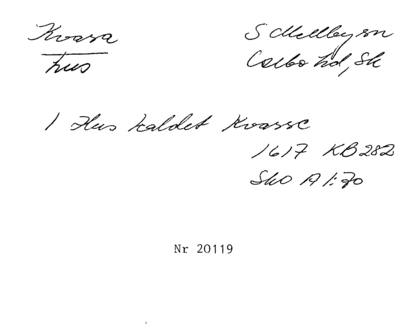 Kvassa
hus
S Mellby sn
Albo hd, Sk
1 Hus kaldet Kvasse
1617 KB 282
SkO A 1:70
Nr 20119